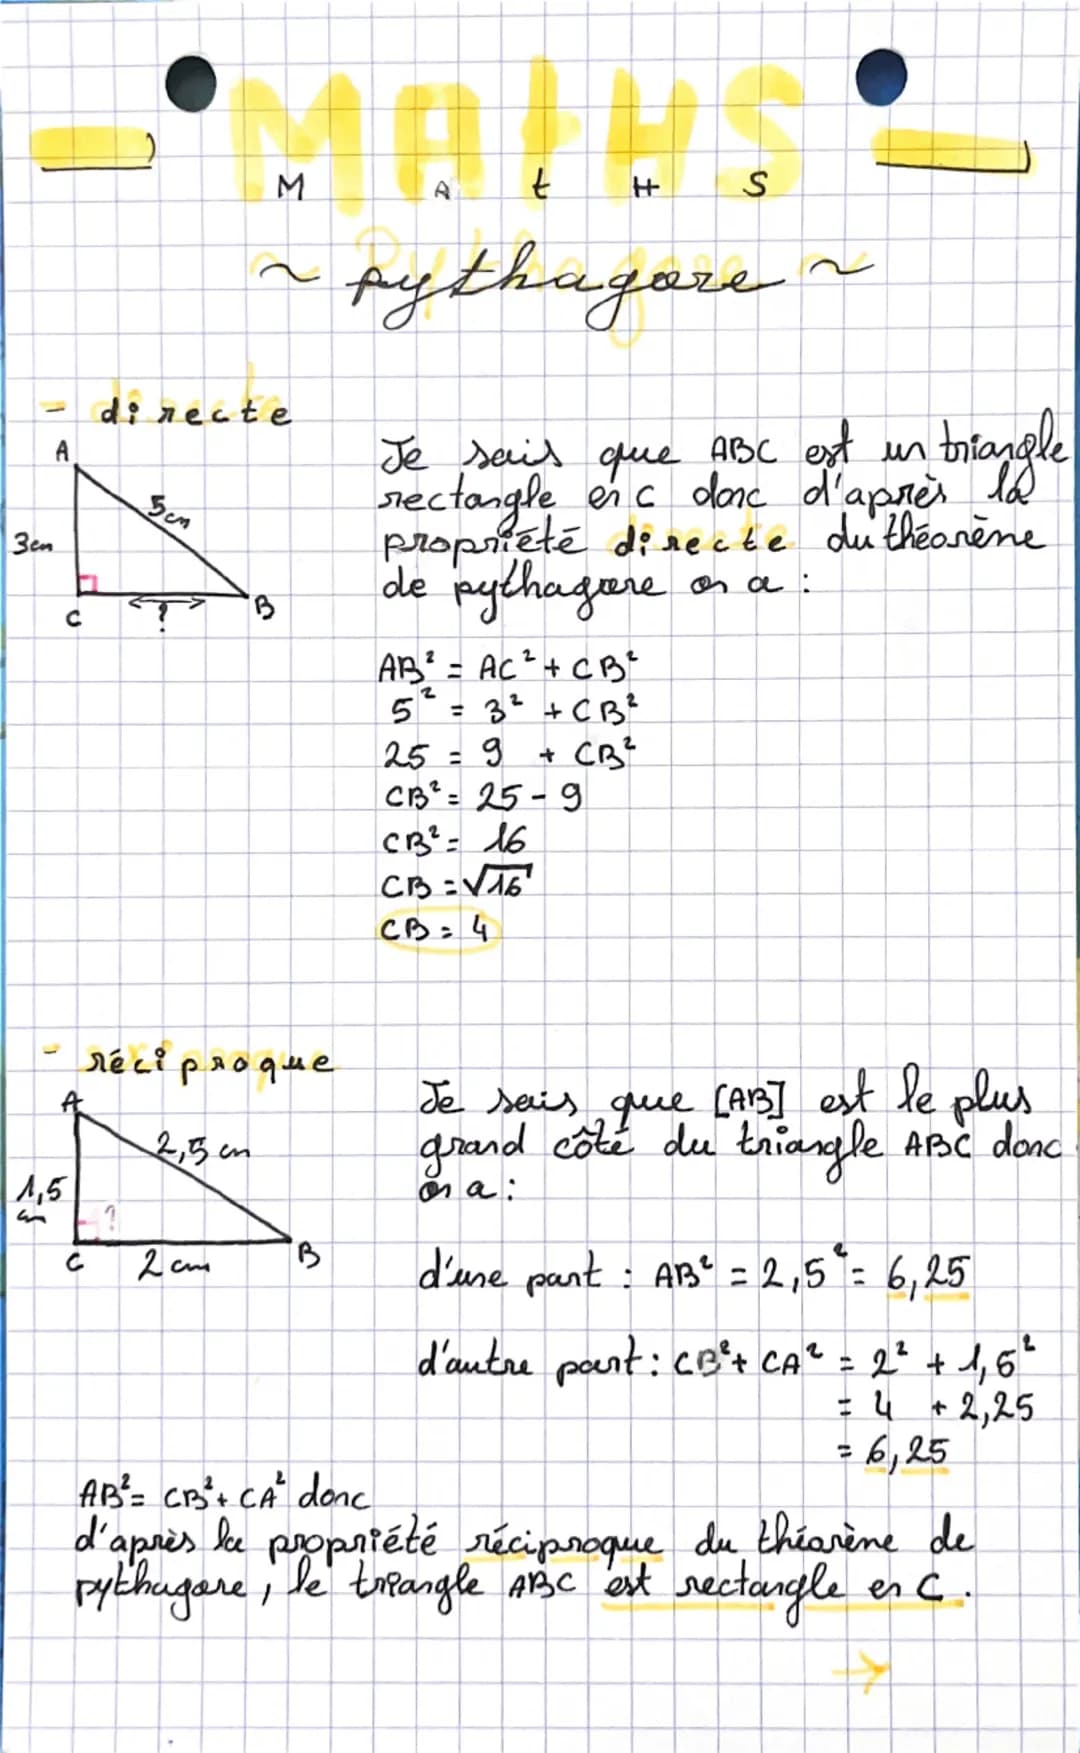 MAtHS
M A t H S
~ pythagore ~
- directe
A
5cm
3cm
C
?
B
Je sais que ABC est un triangle
rectangle en C donc d'après la
propriété directe du théorème
de pythagore on a :
AB² = AC² + CB²
5² = 3² + CB²
25 = 9 + CB²
CB² = 25 - 9
CB² = 16
CB = √16
CB = 4
- réciproque
A
2,5 cm
1,5
cm
?
C
2 cm
B
Je sais que [AB] est le plus
grand côté du triangle ABC donc
on a :
d'une part : AB² = 2,5² = 6,25
d'autre part : CB² + CA² = 2² + 1,5²
= 4 + 2,25
= 6,25
AB² = CB² + CA² donc
d'après la propriété réciproque du théorème de
pythagore, le triangle ABC est rectangle en C.
→